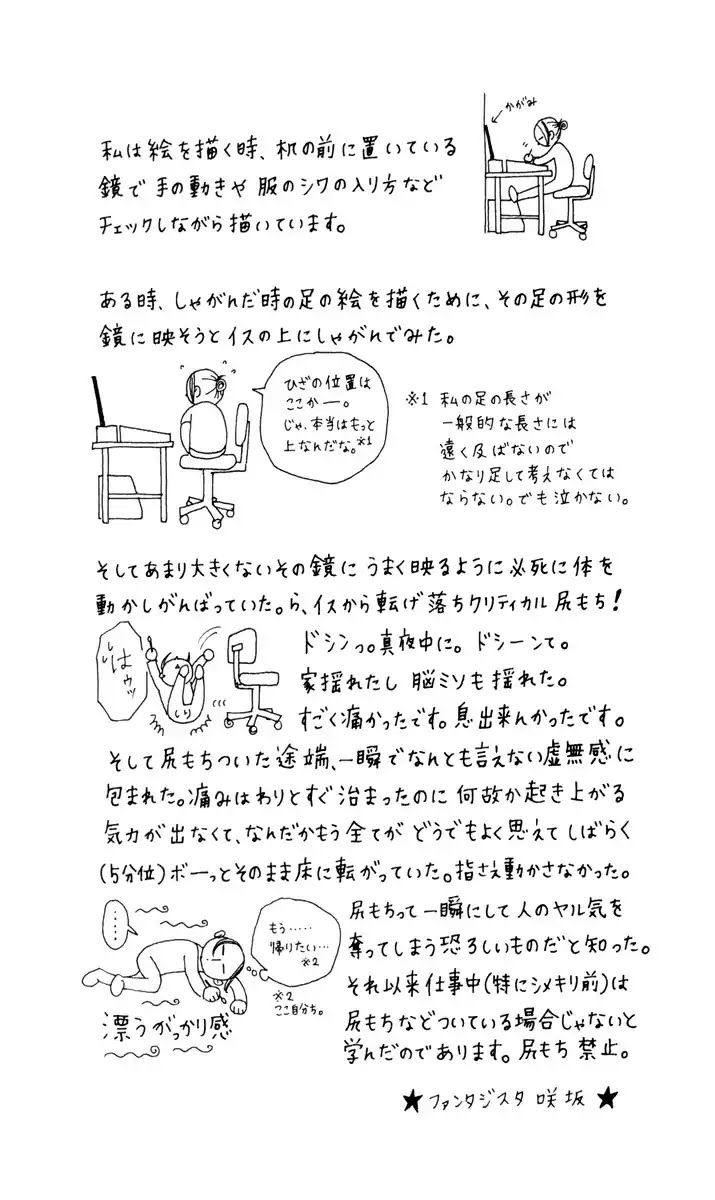 かがみ
私は絵を描く時、机の前に置いている
鏡で手の動きや服のシワの入り方など
チェックしながら描いています。
ある時、しゃがんだ時の足の絵を描くために、その足の形を
鏡に映そうとイスの上にしゃがんでみた。
ひざの位置は
ここかー。
じゃ、本当はもっと
上なんだな。※1
※1 私の足の長さが
一般的な長さには
遠く及ばないので
かなり足して考えなくては
ならない。でも泣かない。
そしてあまり大きくないその鏡にうまく映るように必死に体を
動かしがんばっていた。ら、イスから転げ落ちクリティカル尻もち!
はうッ
しり
ドシンっ。真夜中に。ドシーンて。
家揺れたし脳ミソも揺れた。
すごく痛かったです。息出来んかったです。
そして尻もちついた途端、一瞬でなんとも言えない虚無感に
包まれた。痛みはわりとすぐ治まったのに何故か起き上がる
気力が出なくて、なんだかもう全てがどうでもよく思えてしばらく
(5分位)ボーっとそのまま床に転がっていた。指さえ動かさなかった。
・・・・
もう‥‥‥
帰りたい…
※2
※2
ここ自分ち。
漂うがっかり感
尻もちって一瞬にして人のヤル気を
奪ってしまう恐ろしいものだと知った。
それ以来仕事中(特にシメキリ前)は
尻もちなどついている場合じゃないと
学んだのであります。尻もち禁止。
★ファンタジスタ咲坂★